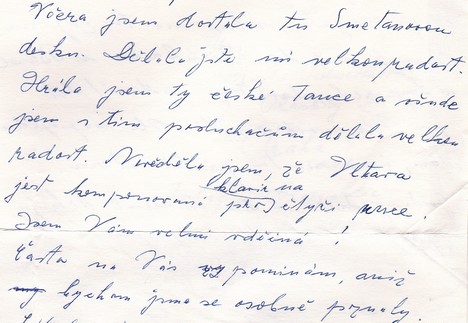 Včera jsem dostala tu Smetanovou
desku. Dělala jste mi velkou radost.
Hrála jsem ty české Tance a všude
jsem s tim posluchačům dělala velkou
radost. Nevěděla jsem, že Vltava
klavír na
jest komponovaná pro čtyři ruce.
Jsem Vám velmi vděčná!
Často na Vás vypominám, aniž
bychom jsme se osobně poznaly.